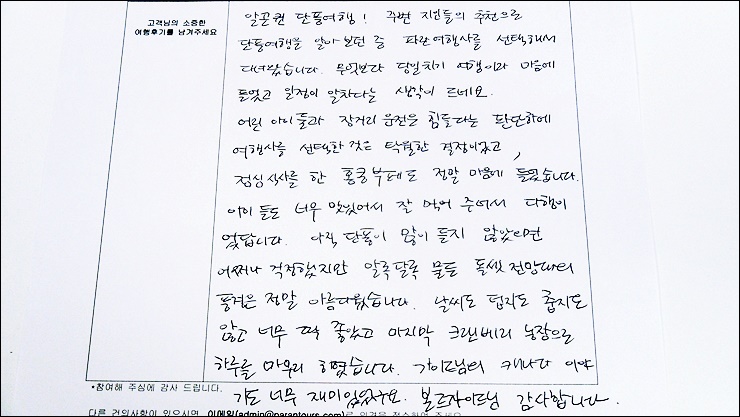 고객님의 소중한
여행후기를 남겨주세요
알곤퀸 단풍여행! 주변 지인들의 추천으로
단풍여행을 알아보던 중 파란여행사를 선택해서
다녀왔습니다. 무엇보다 당일치기 여행이라 마음에
들었고 일정이 알차다는 생각이 드네요.
어린 아이들과 장거리 운전은 힘들다는 판단하에
여행사를 선택한 것은 탁월한 결정이었고,
점심식사를 한 홍콩부페도 정말 마음에 들었습니다.
아이들도 너무 맛있어서 잘 먹어 주어서 다행이
었답니다. 아직 단풍이 많이 들지 않았으면
어쩌나 걱정했지만 알록달록 물든 돌셋 전망대의
풍경은 정말 아름다웠습니다. 날씨도 덥지도 춥지도
않고 너무 딱 좋았고 마지막 크랜베리 농장으로
하루를 마무리 하였습니다. 가이드님의 캐나다 이야
기도 너무 재미있었구요. 감사합니다.
•참여해 주심에 감사 드립니다.
다른 건의사항이 있으시면, 이메일(admin@parantours.com)로 의견을 접수하여 주세요.